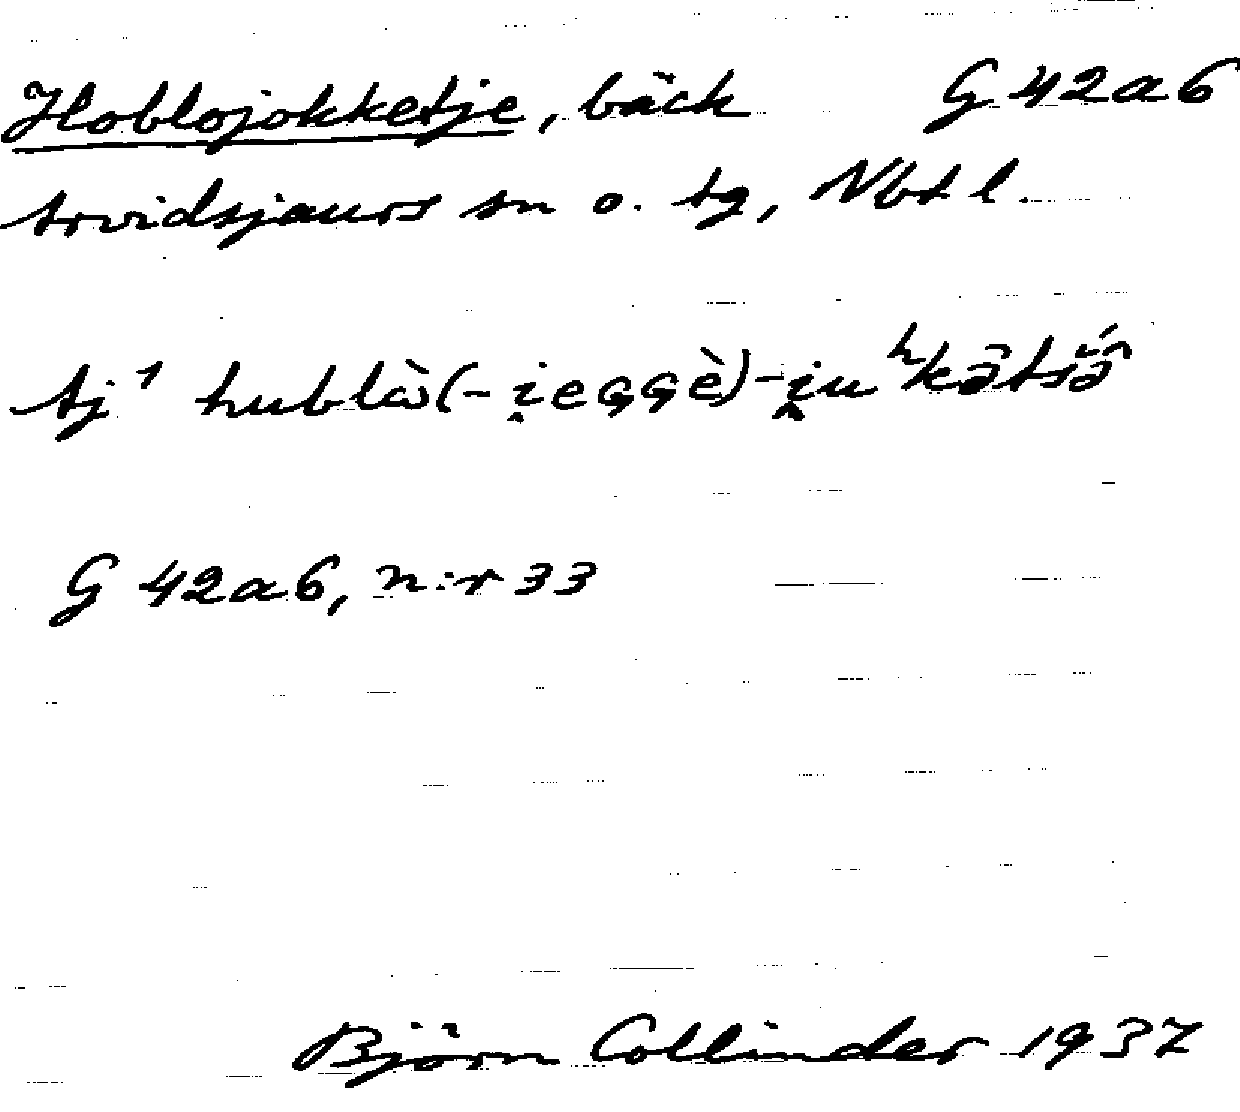 Hoblojokketje, bäck G 42a6
Arvidsjaurs sn o. tg, Nbtl.
Aj¹ hublὰ(-i̯eɢɢè)-i̯uʰkə̄tsə̄́
G 42a6, n:r 33
Björn Collinder 1937